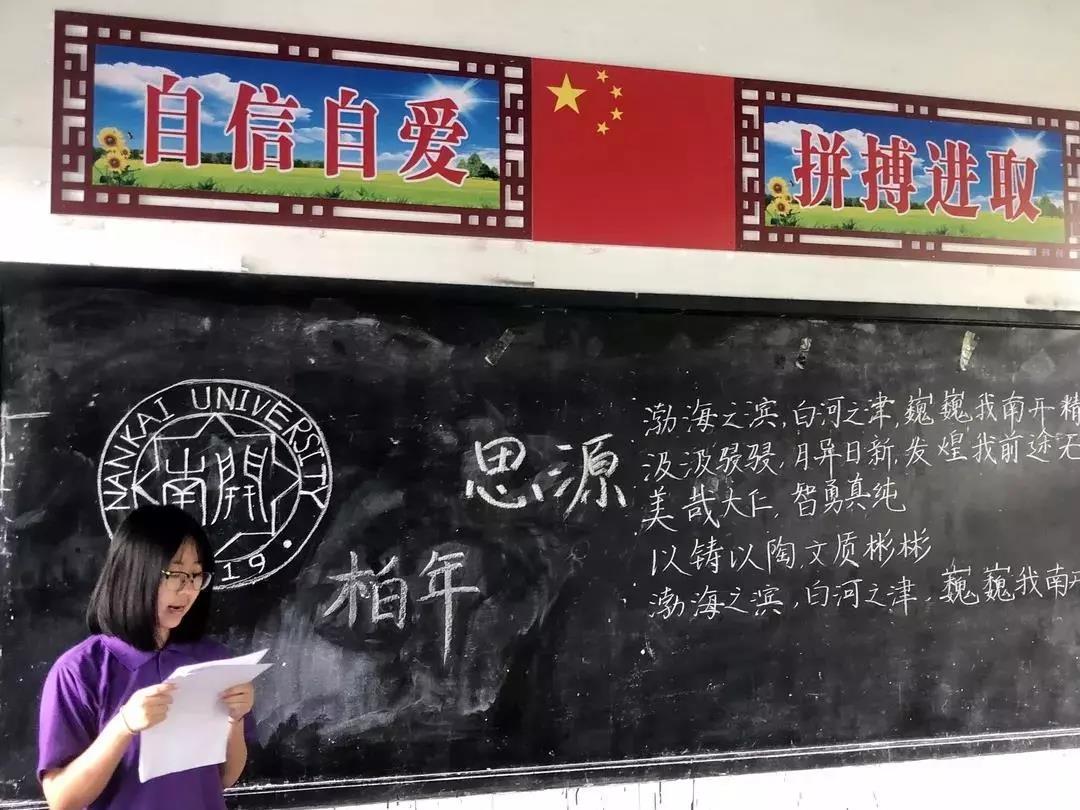 自信自爱
拼搏进取
NANKAI UNIVERSITY
南開
19
思源
柏年
渤海之滨,白河之津,巍巍我南开精
汲汲骎骎,月异日新,发煌我前途无
美哉大仁,智勇真纯
以铸以陶,文质彬彬
渤海之滨,白河之津,巍巍我南开